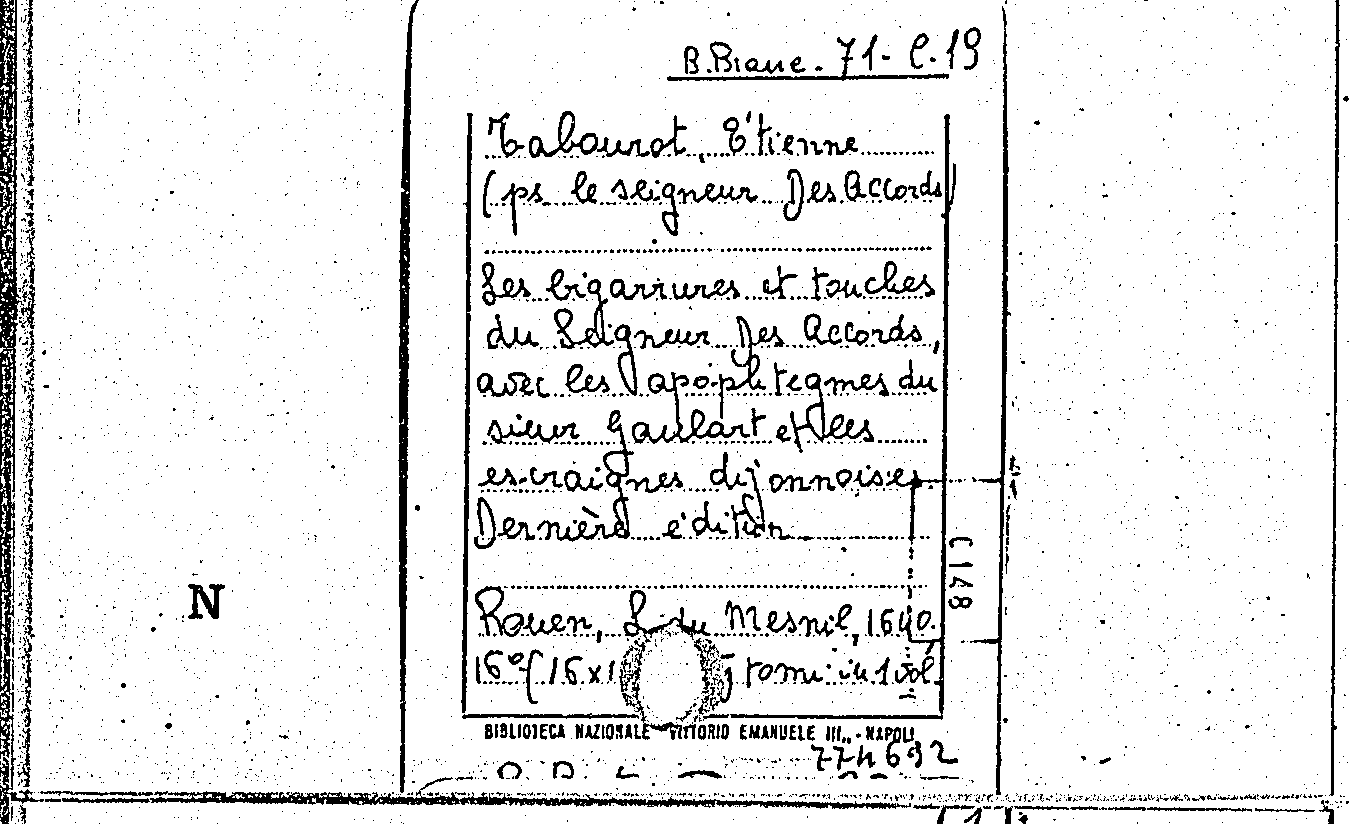 B. Branc. 71- C. 19
Tabourot, Étienne
(ps. le seigneur Des Accords)
Les bigarrures et touches
du Seigneur Des Accords,
avec les apophtegmes du
sieur Gaulart et les
escraignes dijonnoises.
Dernière édition
C148
N
Rouen, L. du Mesnil, 1640.
16° (16x1 tomi in 1 vol.
BIBLIOTECA NAZIONALE "VITTORIO EMANUELE III" - NAPOLI
774692